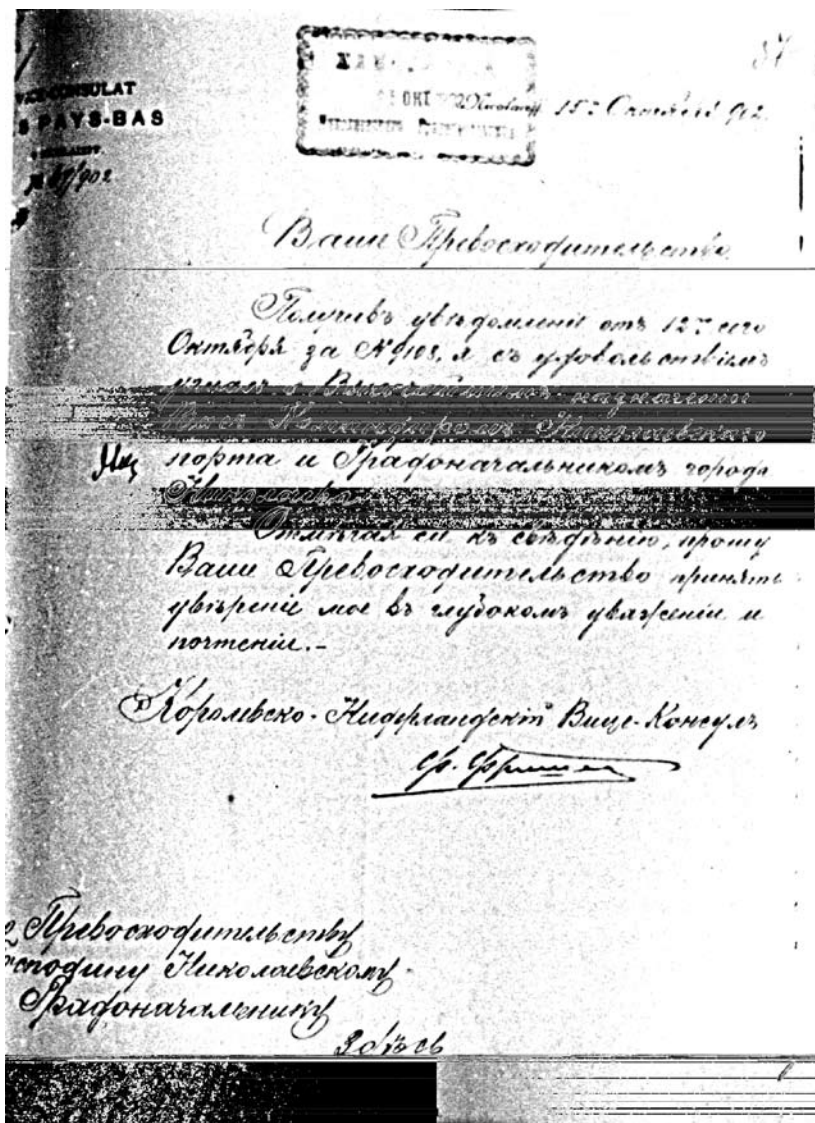 VICE-CONSULAT
PAYS-BAS
№ /902
15го Октября 902.
Ваше Превосходительство
Получивъ увѣдомленіе отъ 12го сего
Октября за № 9108, я съ удовольствіемъ
узналъ о Высочайшемъ назначеніи
Васъ Командиромъ Николаевскаго
порта и Градоначальникомъ города
Николаева.
къ свѣдѣнію, прошу
Ваше Превосходительство принять
увѣреніе мое въ глубокомъ уваженіи и
почтеніи.-
Королевско-Нидерландскій Вице-Консулъ
Превосходительству
Господину Николаевскому
Градоначальнику
Здѣсь